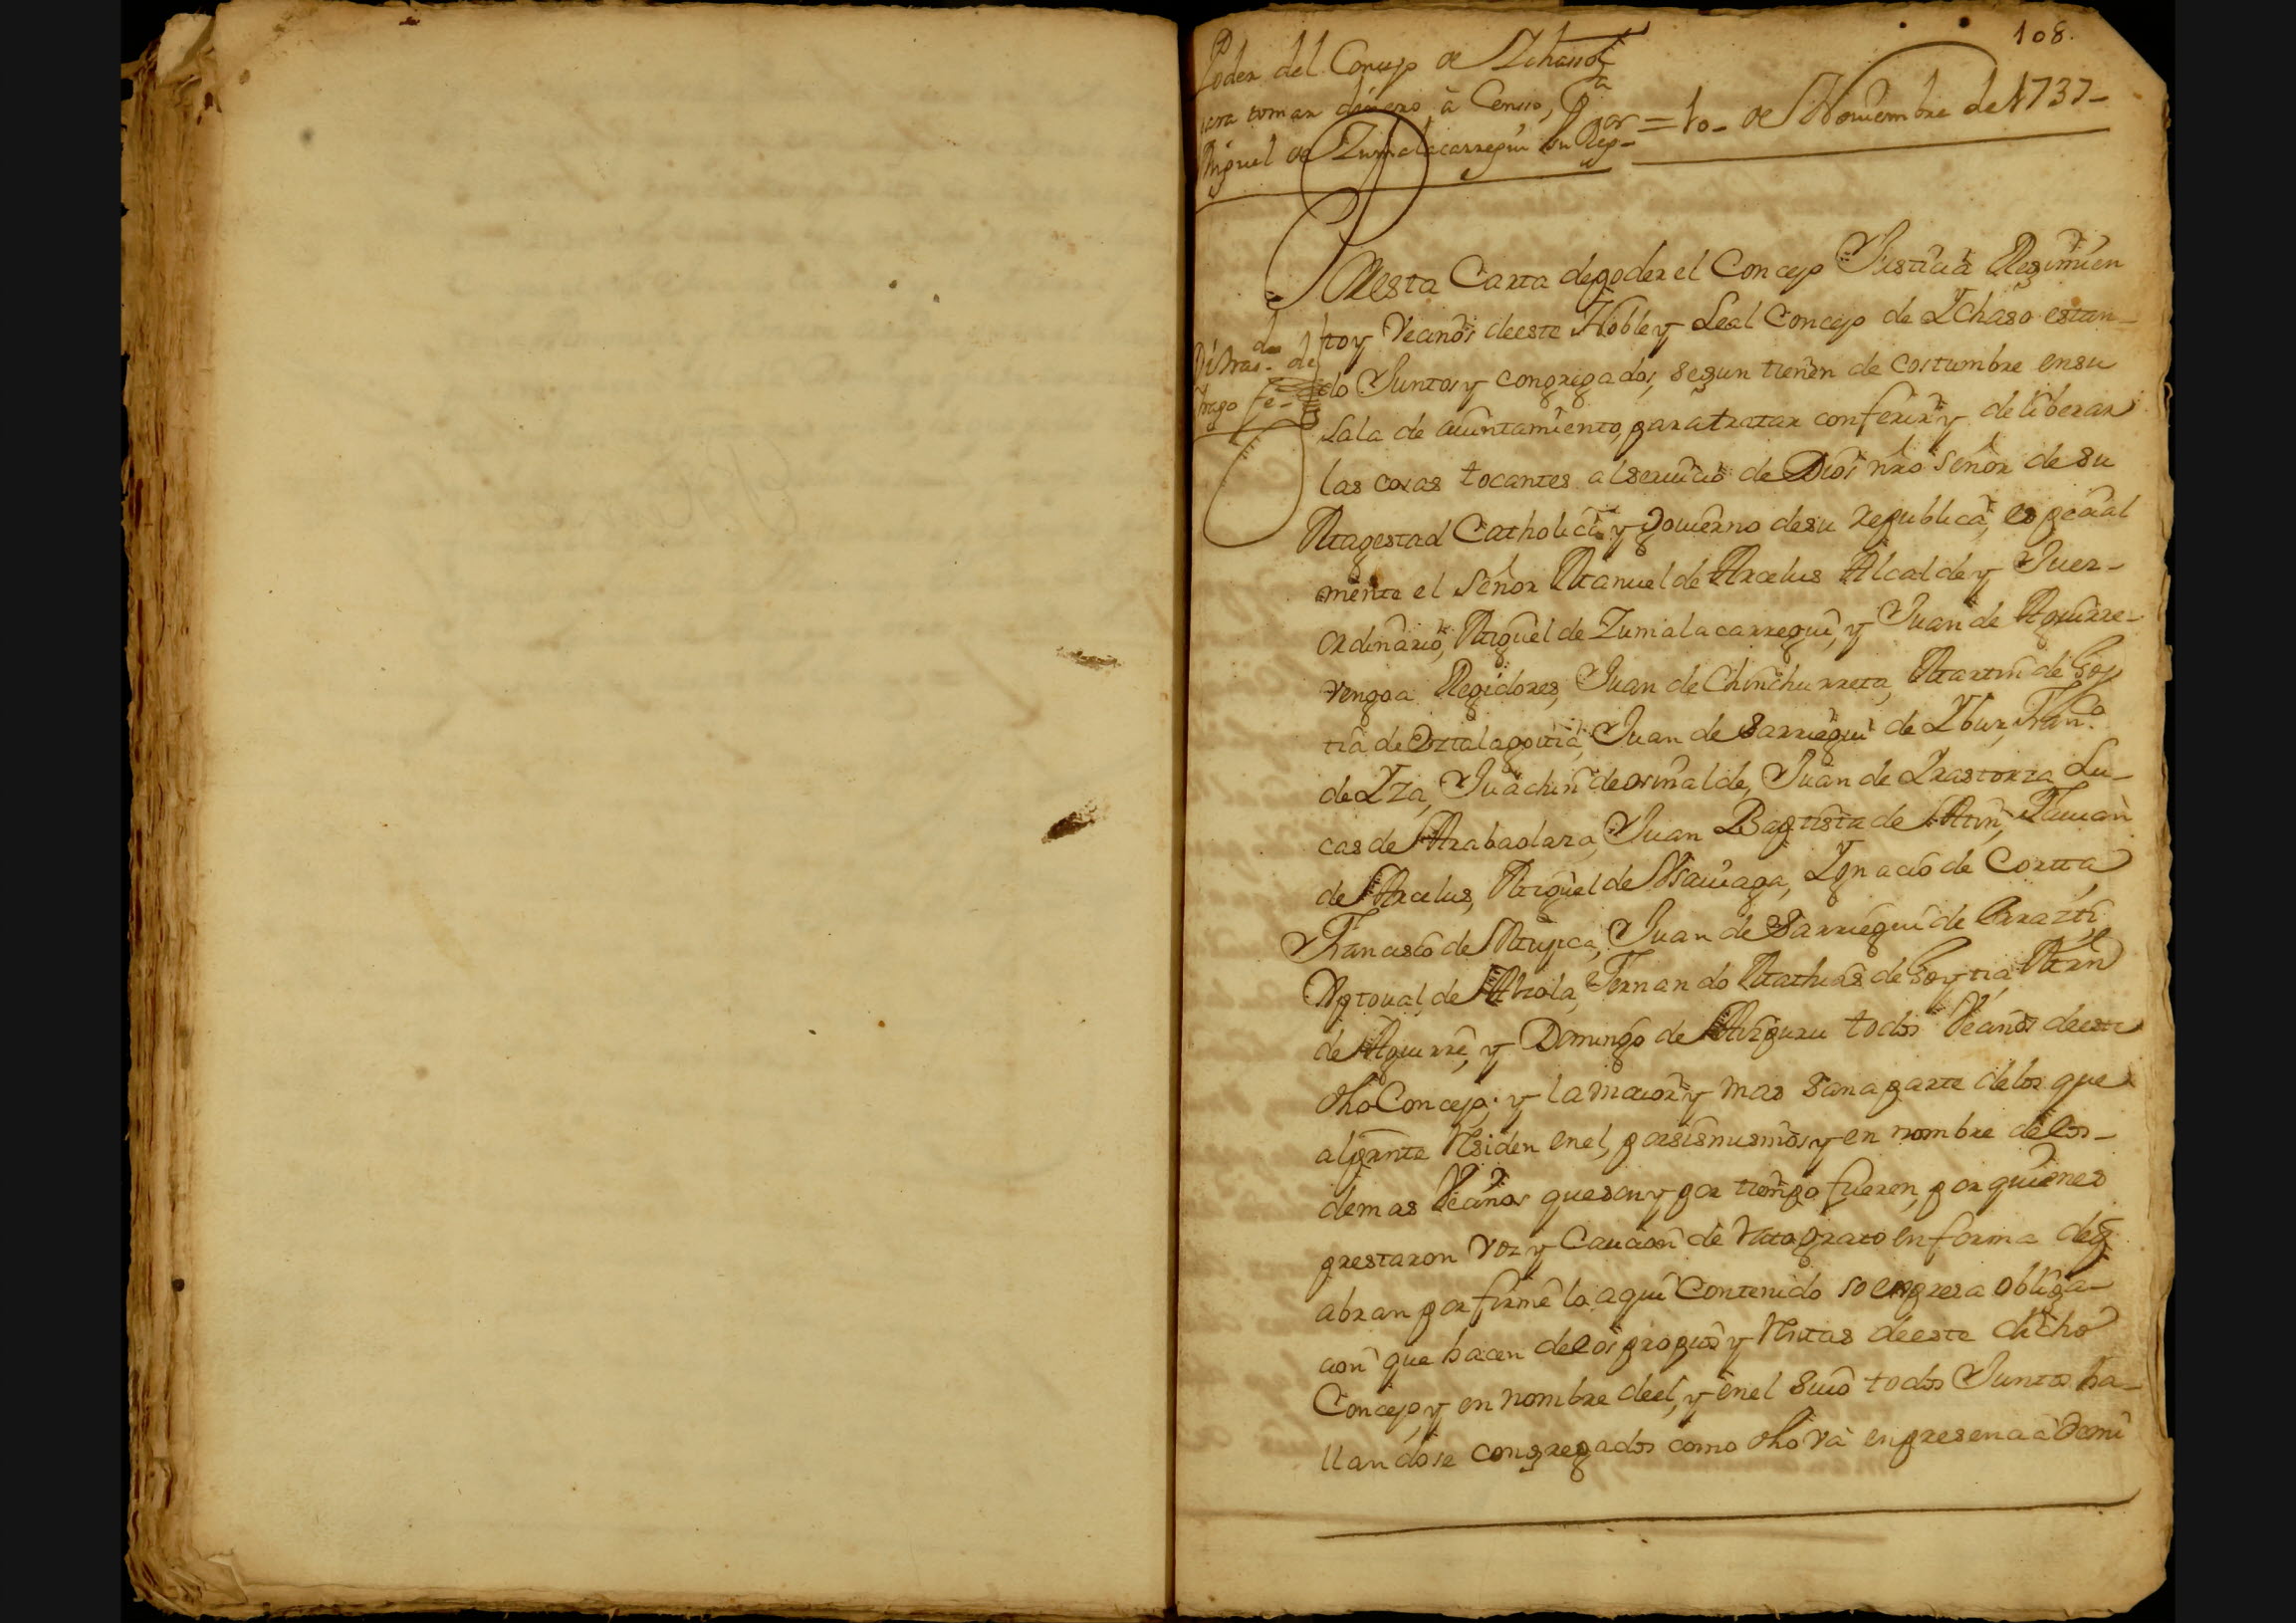 108.
Poder del Concejo de Ichaso
para tomar dinero à Censo, Pa
Miguel de Zumalacarregui su Regor = 10_ de Noviembre de 1737_
Por esta Carta de poder el Concejo Justicia Regimien
to y Vecinos de este Noble y Leal Concejo de Ychaso estan_
do Juntos y congregados, segun tienen de costumbre en su
sala de aiuntamiento, para tratar conferir y deliberar
las cosas tocantes al servicio de Dios nro señor de su
Magestad Catholica y Govierno de su republica, especial
mente el señor Manuel de Arcelus Alcalde y Juez_
ordinario, Miguel de Zumalacarregui, y Juan de Aguirre_
vengoa Regidores, Juan de Chinchurreta, Martin de Goy
tia de Oztalagoitia, Juan de Sarriegui de Ybur, Franco
de Yza, Juachin de orinalde, Juan de Yrastorza Lu_
cas de Arabaolaza, Juan Baptista de
de Arcelus, Miguel de Ignacio de Cortta
Francisco de Mugica, Juan de Sarriegui de
de Fernando Mathias de Goytia
de Aguirre, y Domingo de todos Vecinos de este
dho Concejo, y la maior y mas sana parte de los que
al presnte residen en el, por si mismos y en nombre de los_
demas Vecinos que son y por tiempo fueren, por quienes
prestaron voz y Caucion de rato grato en forma de q
abran por firme lo aqui Contenido so expresa obliga_
cion que hacen de los propios y rentas de este dicho
Concejo y en nombre de el, y en el suio todos Juntos ha_
llandose congregados como dho va en presencia de mi